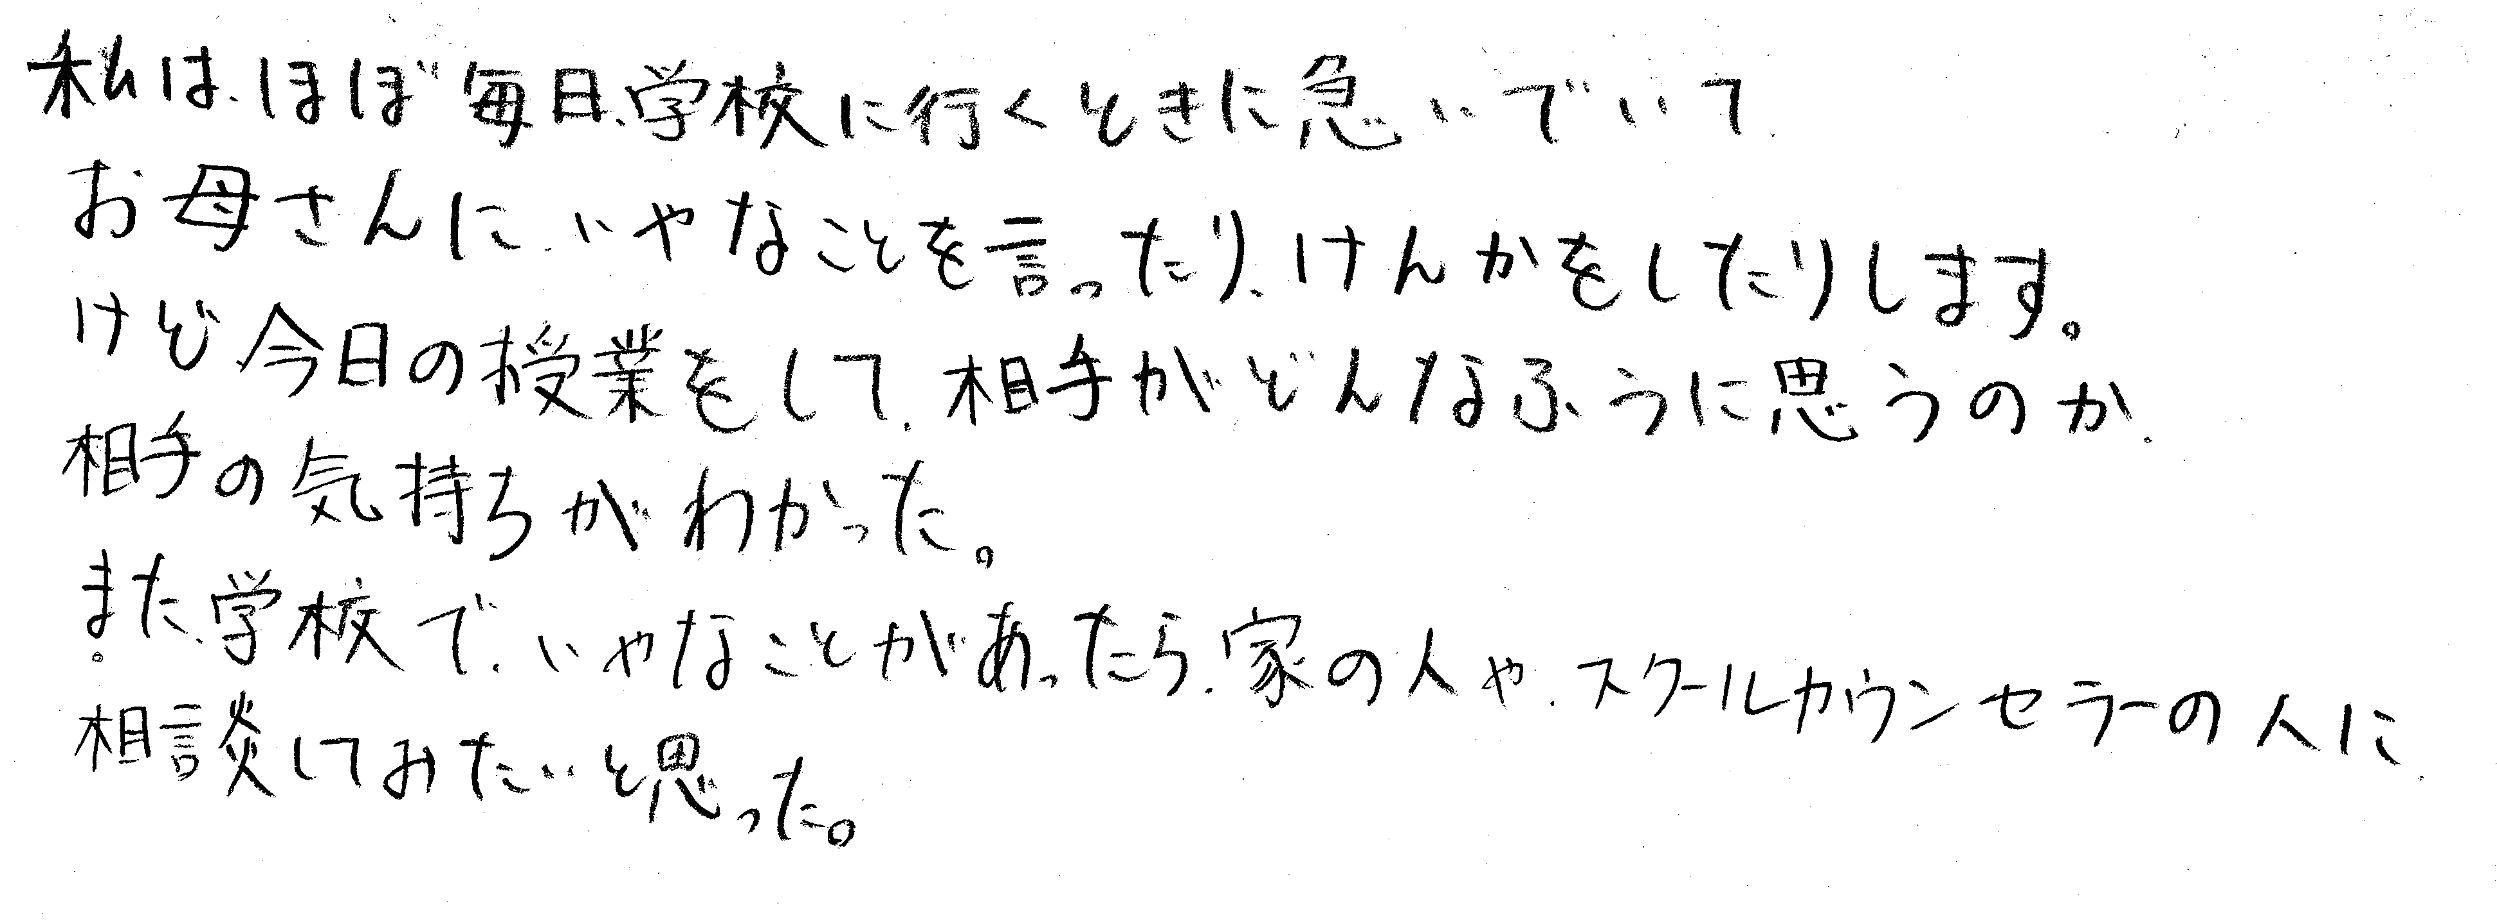 私は、ほぼ毎日、学校に行くときに急いでいて
お母さんに、いやなことを言ったり、けんかをしたりします。
けど今日の授業をして、相手がどんなふうに思うのか、
相手の気持ちがわかった。
また、学校で、いやなことがあったら、家の人や、スクールカウンセラーの人に、
相談してみたいと思った。